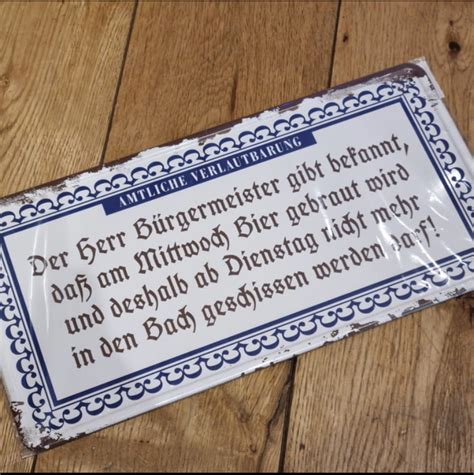 AMTLICHE VERLAUTBARUNG
Der Herr Bürgermeister gibt bekannt,
daß am Mittwoch Bier gebraut wird
und deshalb ab Dienstag nicht mehr
in den Bach geschissen werden darf!